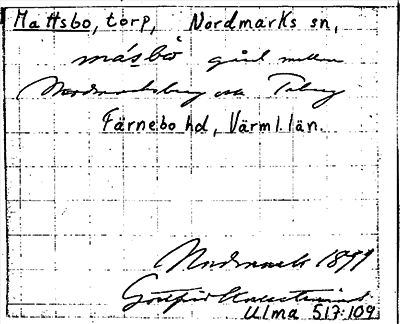 Mattsbo, torp, Nordmarks sn,
måsbo gård mellan
Nordmarksberg och Taberg
Färnebo hd, Värml. län.
Nordmark 1899
Gottfrid Kallstenius
Ulma 517:109